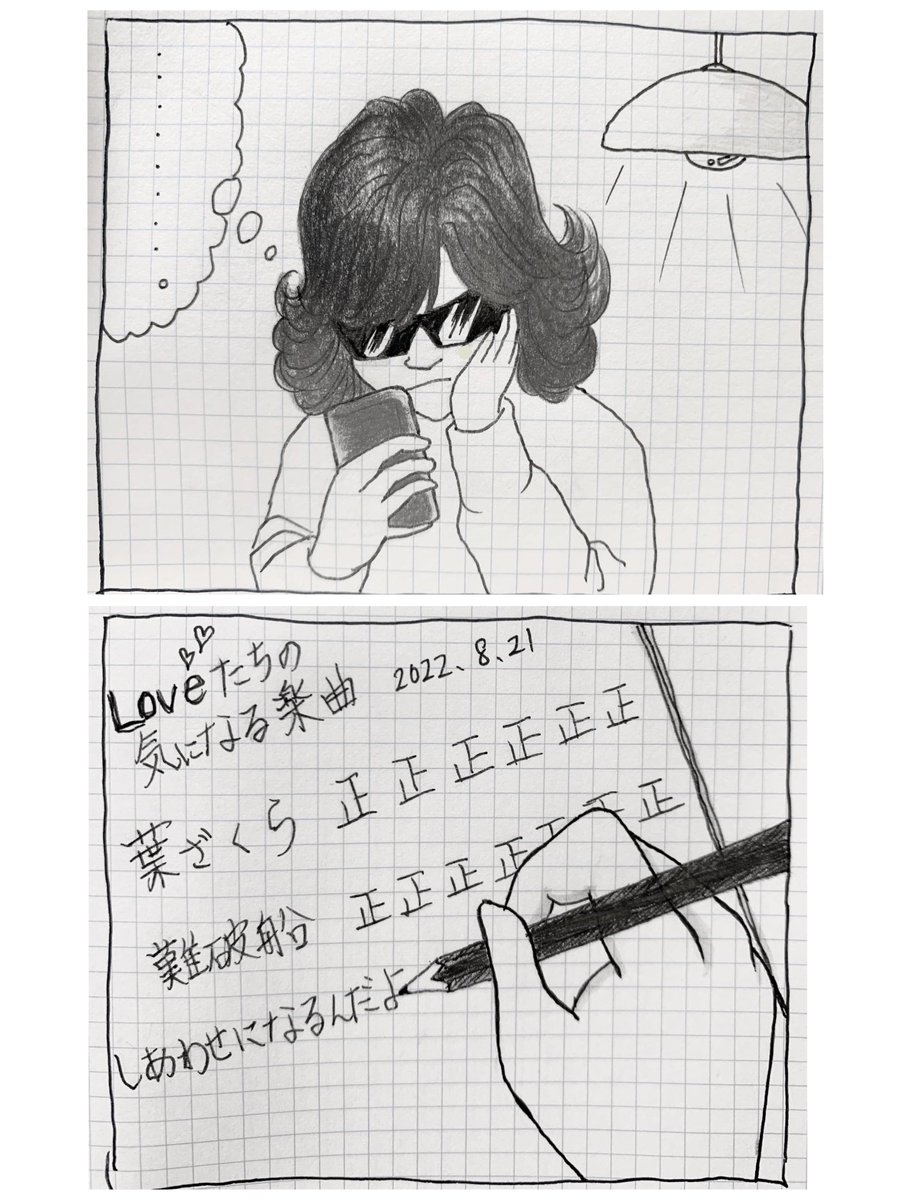 Loveたちの
気になる楽曲 2022、8、21
葉ざくら 正正正正正正
難破船 正正正正正正正
しあわせになるんだよ